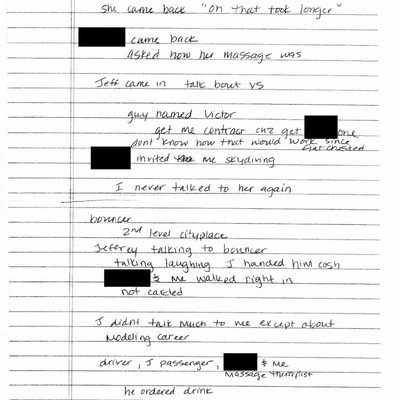 she came back "oh that took longer"
came back
asked how her massage was
Jeff came in talk bout VS
guy named Victor
get me contract cuz get one
dont know how that would work since
flat chested
invited me skydiving
I never talked to her again
bouncer
2nd level cityplace
Jeffrey talking to bouncer
talking laughing J handed him cash
& me walked right in
not carded
J didnt talk much to me except about
modeling career
driver, J passenger, & me
massage therapist
he ordered drink